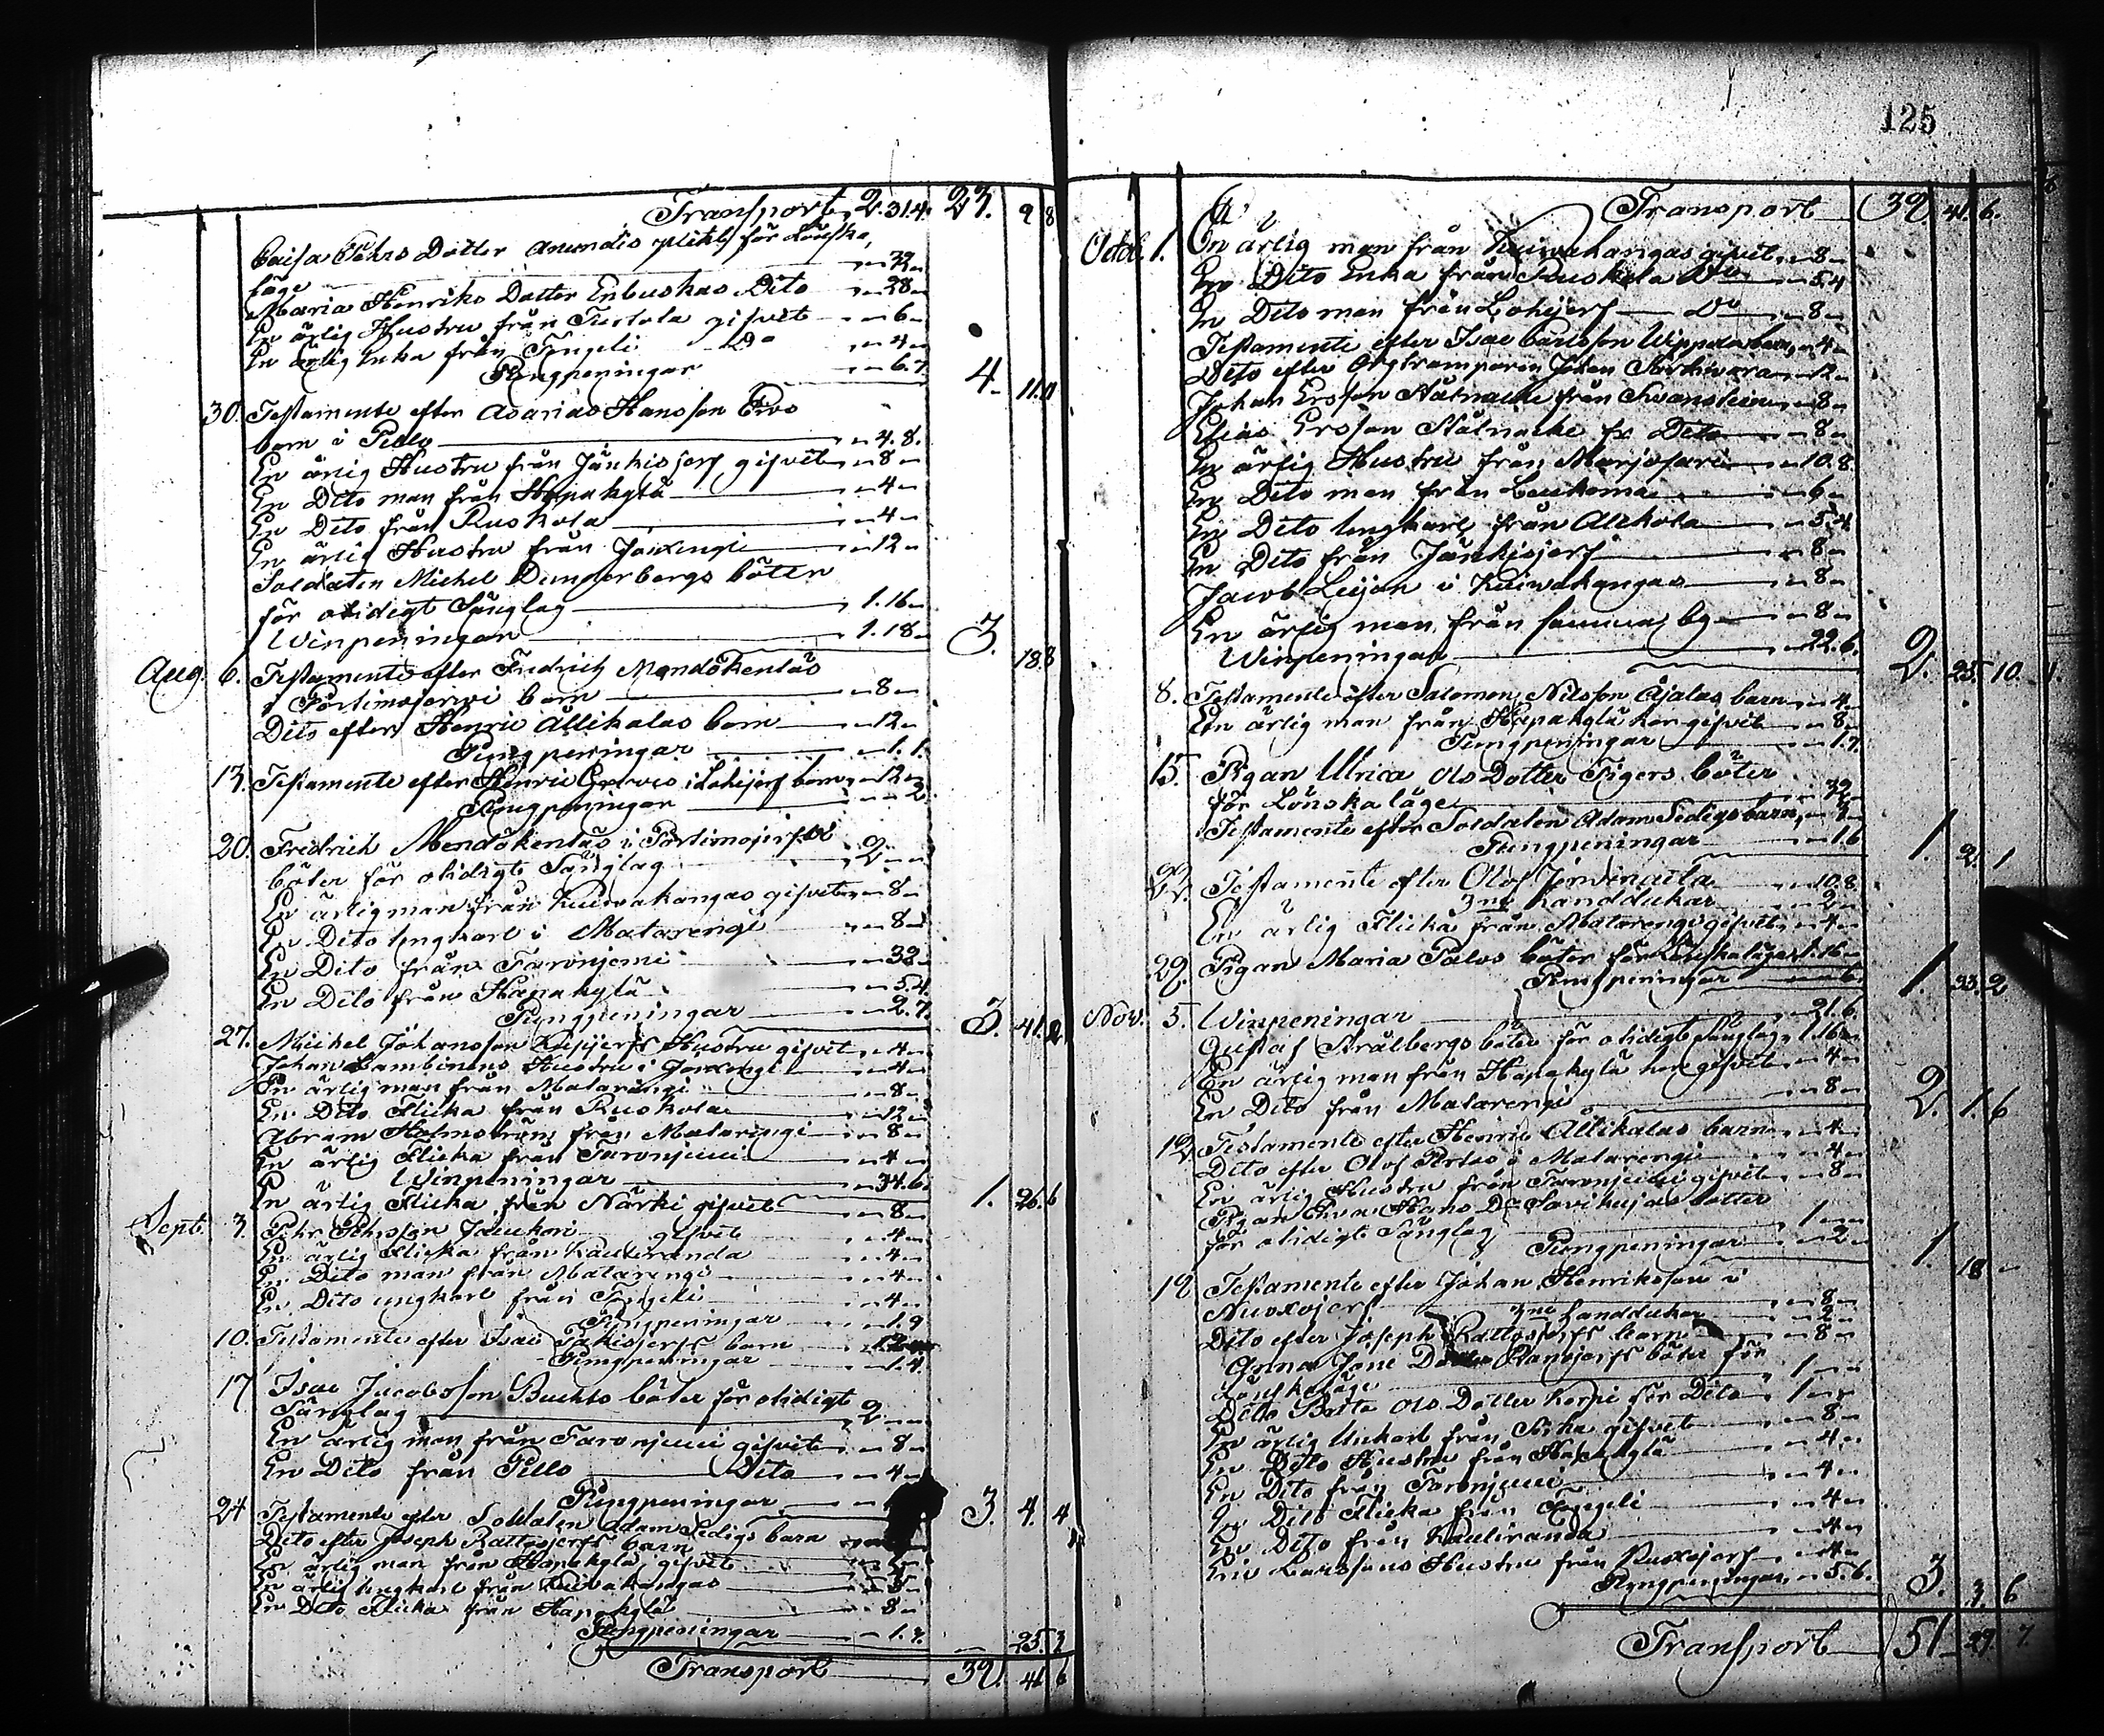 Transport 2.31.4. 23. 9 8
Caisa Pehrs Dotter Anundis plikt för Lönska,
läge 32
Maria Henriks Dotter Enbuskas Dito 28
En ärlig Hustru från Turtola gifvit 6
En ärlig Enka från Tengeli Do 4
Pungpeningar 6.7 4. 11.11
30. Testamente efter Asarias Hansson
barn i Pello 4.8.
En ärlig Hustru från Jänkisjerf gifvit 8
En Dito man från Hapakylä 4
En Dito från Ruskola 4
En ärlig Hustru från Joxengi 12
Soldaten Michel Dunderbergs böter
för olidigt Sänglag 1.16
Winpeningar 1.18 3. 18 8
Aug. 6. Testamente efter Fredrich Mendökentäs
i Portimojerwi barn 8
Dito efter Henric Allikalas barn 12
Pungpeningar 1.1.
13. Testamente efter Henric i Lohijerf barn 12
Pungpeningar 2
20. Fredrich Mendökentäs i Portimojerfwi
böter för olidigt Sänglag 2
En ärlig man från Kuiwakangas gifvit 8
En Dito ungkarl i Matarengi 8
En Dito från Taronjemi 32
En Dito från Hapakylä 5.4
Pungpeningar 2.7. 3. 41. 2
27. Michel Johansson Hustru gifvit 4
Johan Lambinens Hustru i Joxengi 4
En ärlig man från Matarengi 8
En Dito Flicka från Ruskola 12
Abram Holmström från Matarengi 8
En ärlig Flicka från Taronjemi 4
Winpeningar 34.6.
En ärlig Flicka från Närki gifvit 8 1. 26. 6
Sept. 3. Pehr Pehrsson Jauhoi gifvit 4
En ärlig Flicka från Kauliranda 4
En Dito man från Matarengi 4
En Dito ungkarl från Tengeli 4
Pungpeningar 1.9
10. Testamente efter Isac barn 12
Pungpeningar 1.4.
17 Isac Jacobsson Buchts böter för olidigt
Sänglag 2
En ärlig man från Taronjemi gifvit 8
En Dito från Pello Dito 4
Pungpeningar 3. 4. 4
24 Testamente efter Soldaten Adam Ledigs barn
Dito efter Joseph Rattosjerfs barn
En ärlig man från Hapakylä gifvit
En ärlig ungkarl från Kuivakangas
En Dito Flicka från Hapakylä 8
Pungpeningar 1.7. 25 2
Transport 39. 41 6
125
Transport 39 41. 6.
Octob. 1. En ärlig man från Kuiwakangas gifvit 8
En Dito Enka från Do 5.4
En Dito man från Lohijerf Do 8
Testamente efter Isac Carlsson barn 4
Dito efter Orgtramparen Johan 12
Johan Ersson Stålnacke från Svanstein 8
Elias Ersson Stålnacke fr Dito 8
En ärlig Hustru från Marjosari 10.8
En Dito man från 6
En Dito ungkarl från Alkola 5.4
En Dito från Jänkisjerf 8
Jacob Leijon i Kuiwakangas 8
En ärlig man från samma by 8
Winpeningar 22.6. 2. 25. 10
8. Testamente efter Salomon Nilsson Äjälas barn 4
En ärlig man från Hapakylä har gifvit 8
Pungpeningar 1.7.
15. Pigan Ulrica Ols Dotter Tigers böter
för Lönskaläge 32
Testamente efter Soldaten Adam Ledigs barn
Pungpeningar 1.6 1. 2. 1
22. Testamente efter Olof 10.8
3ne handdukar 2
En ärlig Flicka från Matarengi gifvit 4
29. Pigan Maria Palos böter för Lönskaläge 1.16
Pungpeningar 6 1 33. 2
Nov. 5. Winpeningar 21.6.
Gustaf Strålbergs böter för olidigt Sänglag 1.16
En ärlig man från Hapakylä har gifvit 4
En Dito från Matarengi 8 2. 1. 6
12 Testamente efter Henric Allikalas barn 4
Dito efter Olof i Matarengi 4
En ärlig Hustru från Taronjemi gifvit 8
Pigan Hans Dr dotter
för olidigt Sänglag 1
Pungpeningar 2 1. 18
19 Testamente efter Johan Henriksson i
Ruoxojerf 8
3ne handdukar 2
Dito efter Joseph Rattosjerfs barn 8
Anna Jöns Dotter böter för
Lönskaläge 1
Dito Brita Ols Dotter Korpi för Dito 1
En ärlig Unkarl från gifvit 8
En Dito Hustru från Hapakylä 4
En Dito från Taronjemi 4
En Dito Flicka från Tengeli 4
En Dito från Kauliranda 4
Eric Larssons Hustru från Ruoxojerf 4
Pungpeningar 5.6. 3. 3. 6
Transport 51 29 7.